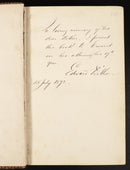 In loving memory of his
dear Father. I present
this book to Edward
on his attaining
age
Edwin
15 July 1893